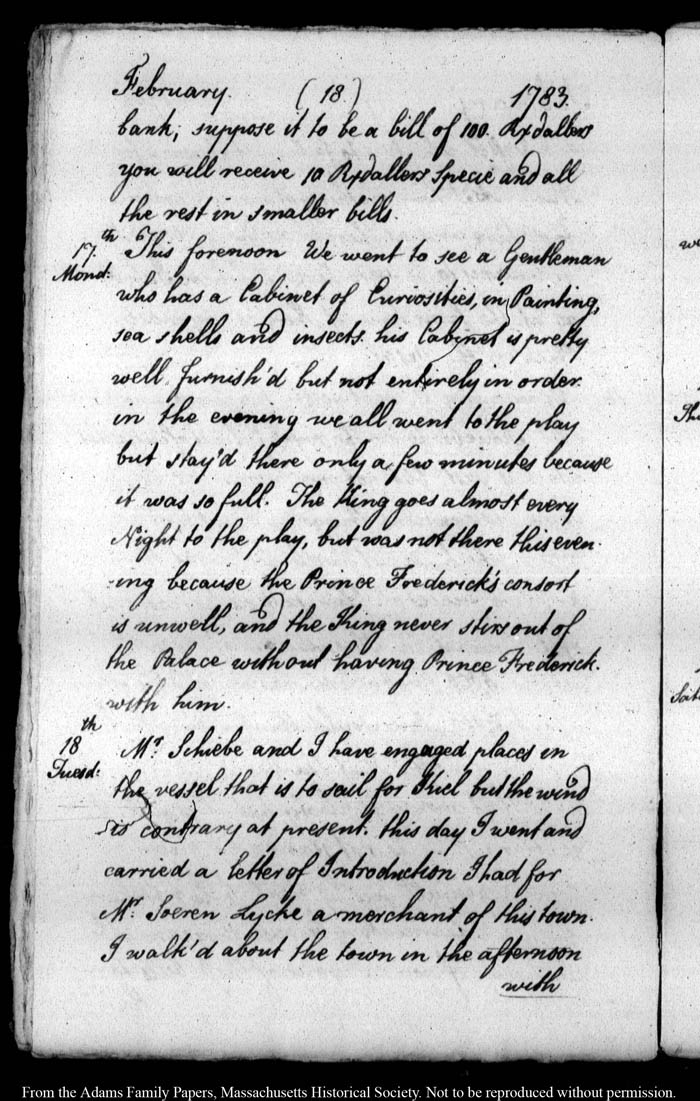 February. (18.) 1783.
bank; suppose it to be a bill of 100. Rxdallers
you will receive 10 Rxdallers Specie and all
the rest in smaller bills.
17.th Mond: This forenoon We went to see a Gentleman
who has a Cabinet of Curiosities, in Painting,
sea shells and insects. his Cabinet is pretty
well furnish'd but not entirely in order.
in the evening we all went to the play
but stay'd there only a few minutes because
it was so full. The King goes almost every
Night to the play, but was not there this even-
-ing because the Prince Frederick's consort
is unwell, and the King never stirs out of
the Palace without having Prince Frederick.
with him.
18th Tuesd: Mr. Schiebe and I have engaged places in
the vessel that is to sail for Kiel but the wind
is contrary at present. this day I went and
carried a letter of Introduction I had for
Mr. Soeren Lycke a merchant of this town.
I walk'd about the town in the afternoon
with
From the Adams Family Papers, Massachusetts Historical Society. Not to be reproduced without permission.